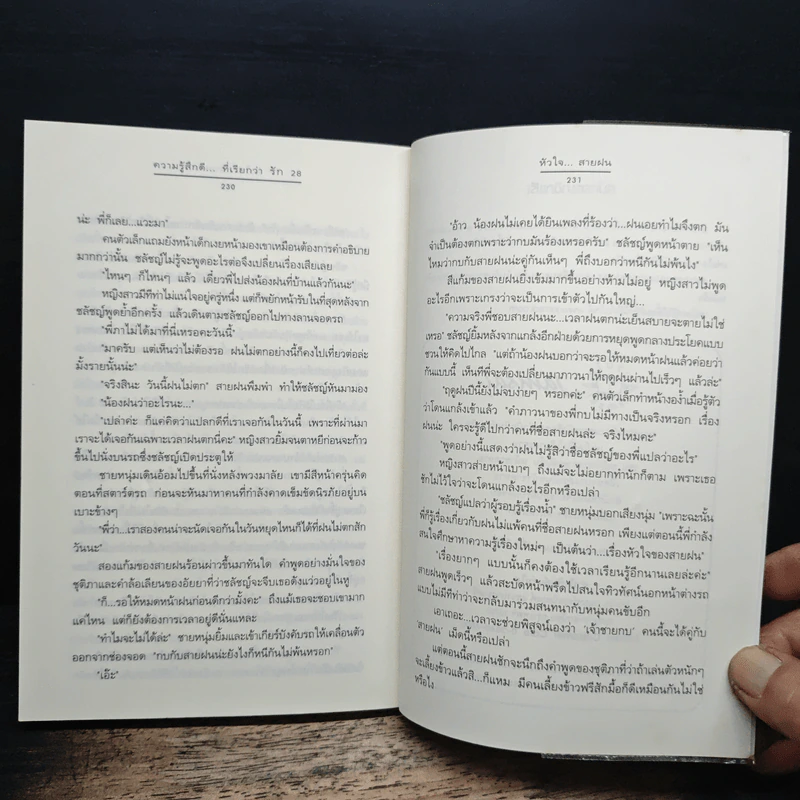 ความรู้สึกดี... ที่เรียกว่า รัก 28
230
น่ะ พี่ก็เลย...แวะมา"
คนตัวเล็กแถมยังหน้าเด็กเงยหน้ามองเขาเหมือนต้องการคำอธิบาย
มากกว่านั้น ชลัชญ์ไม่รู้จะพูดอะไรต่อจึงเปลี่ยนเรื่องเสียเลย
"ไหนๆ ก็ไหนๆ แล้ว เดี๋ยวพี่ไปส่งน้องฝนที่บ้านแล้วกันนะ"
หญิงสาวมีทีท่าไม่แน่ใจอยู่ครู่หนึ่ง แต่ก็พยักหน้ารับในที่สุดหลังจาก
ชลัชญ์พูดย้ำอีกครั้ง แล้วเดินตามชลัชญ์ออกไปทางลานจอดรถ
"พี่ภาไม่ได้มาที่นี่เหรอคะวันนี้"
"มาครับ แต่เห็นว่าไม่ต้องรอ ฝนไม่ตกอย่างนี้ก็คงไปเที่ยวต่อล่ะ
มั้งรายนั้นน่ะ"
"จริงสินะ วันนี้ฝนไม่ตก" สายฝนพึมพำ ทำให้ชลัชญ์หันมามอง
"น้องฝนว่าอะไรนะ..."
"เปล่าค่ะ ก็แค่คิดว่าแปลกดีที่เราเจอกันในวันนี้ เพราะที่ผ่านมา
เราจะได้เจอกันเฉพาะเวลาฝนตกนี่คะ" หญิงสาวยิ้มจนตาหยีก่อนจะก้าว
ขึ้นไปนั่งบนรถซึ่งชลัชญ์เปิดประตูให้
ชายหนุ่มเดินอ้อมไปขึ้นที่นั่งหลังพวงมาลัย เขามีสีหน้าครุ่นคิด
ตอนที่สตาร์ตรถ ก่อนจะหันมาหาคนที่กำลังคาดเข็มขัดนิรภัยอยู่บน
เบาะข้างๆ
"พี่ว่า...เราสองคนน่าจะนัดเจอกันในวันหยุดไหนก็ได้ที่ฝนไม่ตกสัก
วันนะ"
สองแก้มของสายฝนร้อนผ่าวขึ้นมาทันใด คำพูดอย่างมั่นใจของ
ชุติภาและคำล้อเลียนของอัยยาที่ว่าชลัชญ์จะจีบเธอดังแว่วอยู่ในหู
"ก็...รอให้หมดหน้าฝนก่อนดีกว่ามั้งคะ" ถึงแม้เธอจะชอบเขามาก
แค่ไหน แต่ก็ยังต้องการเวลาอยู่ดีนั่นแหละ
"ทำไมจะไม่ได้ล่ะ" ชายหนุ่มยิ้มและเข้าเกียร์บังคับรถให้เคลื่อนตัว
ออกจากช่องจอด "กบกับสายฝนน่ะยังไงก็หนีกันไม่พ้นหรอก"
"เอ๊ะ"
หัวใจ... สายฝน
231
"อ้าว น้องฝนไม่เคยได้ยินเพลงที่ร้องว่า...ฝนเอยทำไมจึงตก มัน
จำเป็นต้องตกเพราะว่ากบมันร้องเหรอครับ" ชลัชญ์พูดหน้าตาย "เห็น
ไหมว่ากบกับสายฝนน่ะคู่กันเห็นๆ พี่ถึงบอกว่าหนีกันไม่พ้นไง"
สีแก้มของสายฝนยิ่งเข้มมากขึ้นอย่างห้ามไม่อยู่ หญิงสาวไม่พูด
อะไรอีกเพราะเกรงว่าจะเป็นการเข้าตัวไปกันใหญ่...
"ความจริงพี่ชอบสายฝนนะ...เวลาฝนตกน่ะเย็นสบายจะตายไม่ใช่
เหรอ" ชลัชญ์ยิ้มหลังจากแกล้งอีกฝ่ายด้วยการหยุดพูดกลางประโยคแบบ
ชวนให้คิดไปไกล "แต่ถ้าน้องฝนบอกว่าจะรอให้หมดหน้าฝนแล้วค่อยว่า
กันแบบนี้ เห็นทีพี่จะต้องเปลี่ยนมาภาวนาให้ฤดูฝนผ่านไปเร็วๆ แล้วล่ะ"
"ฤดูฝนปีนี้ยังไม่จบง่ายๆ หรอกค่ะ" คนตัวเล็กทำหน้างอง้ำเมื่อรู้ตัว
ว่าโดนแกล้งเข้าแล้ว "คำภาวนาของพี่กบไม่มีทางเป็นจริงหรอก เรื่อง
ฝนน่ะ ใครจะรู้ดีไปกว่าคนที่ชื่อสายฝนล่ะ จริงไหมคะ"
"พูดอย่างนี้แสดงว่าฝนไม่รู้สิว่าชื่อชลัชญ์ของพี่แปลว่าอะไร"
หญิงสาวส่ายหน้าเบาๆ ถึงแม้จะไม่อยากทำนักก็ตาม เพราะเธอ
ชักไม่ไว้ใจว่าจะโดนแกล้งอะไรอีกหรือเปล่า
"ชลัชญ์แปลว่าผู้รอบรู้เรื่องน้ำ" ชายหนุ่มบอกเสียงนุ่ม "เพราะฉะนั้น
พี่ก็รู้เรื่องเกี่ยวกับฝนไม่แพ้คนที่ชื่อสายฝนหรอก เพียงแต่ตอนนี้พี่กำลัง
สนใจศึกษาหาความรู้เรื่องใหม่ๆ เป็นต้นว่า...เรื่องหัวใจของสายฝน"
"เรื่องยากๆ แบบนั้นก็คงต้องใช้เวลาเรียนรู้อีกนานเลยล่ะค่ะ"
สายฝนพูดเร็วๆ แล้วสะบัดหน้าพรืดไปสนใจทิวทัศน์นอกหน้าต่างรถ
แบบไม่มีทีท่าว่าจะกลับมาร่วมสนทนากับหนุ่มคนขับอีก
เอาเถอะ...เวลาจะช่วยพิสูจน์เองว่า 'เจ้าชายกบ' คนนี้จะได้คู่กับ
'สายฝน' เม็ดนี้หรือเปล่า
แต่ตอนนี้สายฝนชักจะนึกถึงคำพูดของชุติภาที่ว่าถ้าเล่นตัวหนักๆ
จะเลี้ยงข้าวแล้วสิ...ก็แหม มีคนเลี้ยงข้าวฟรีสักมื้อก็ดีเหมือนกันไม่ใช่
หรือไง